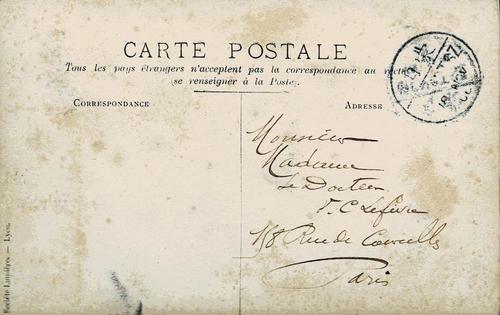 CARTE POSTALE
Tous les pays étrangers n'acceptent pas la correspondance au recto
(se renseigner à la Poste)
CORRESPONDANCE
ADRESSE
Monsieur
Madame
Le Docteur
Lefèvre
Rue de Courcelles
Paris
Société Lumière — Lyon.